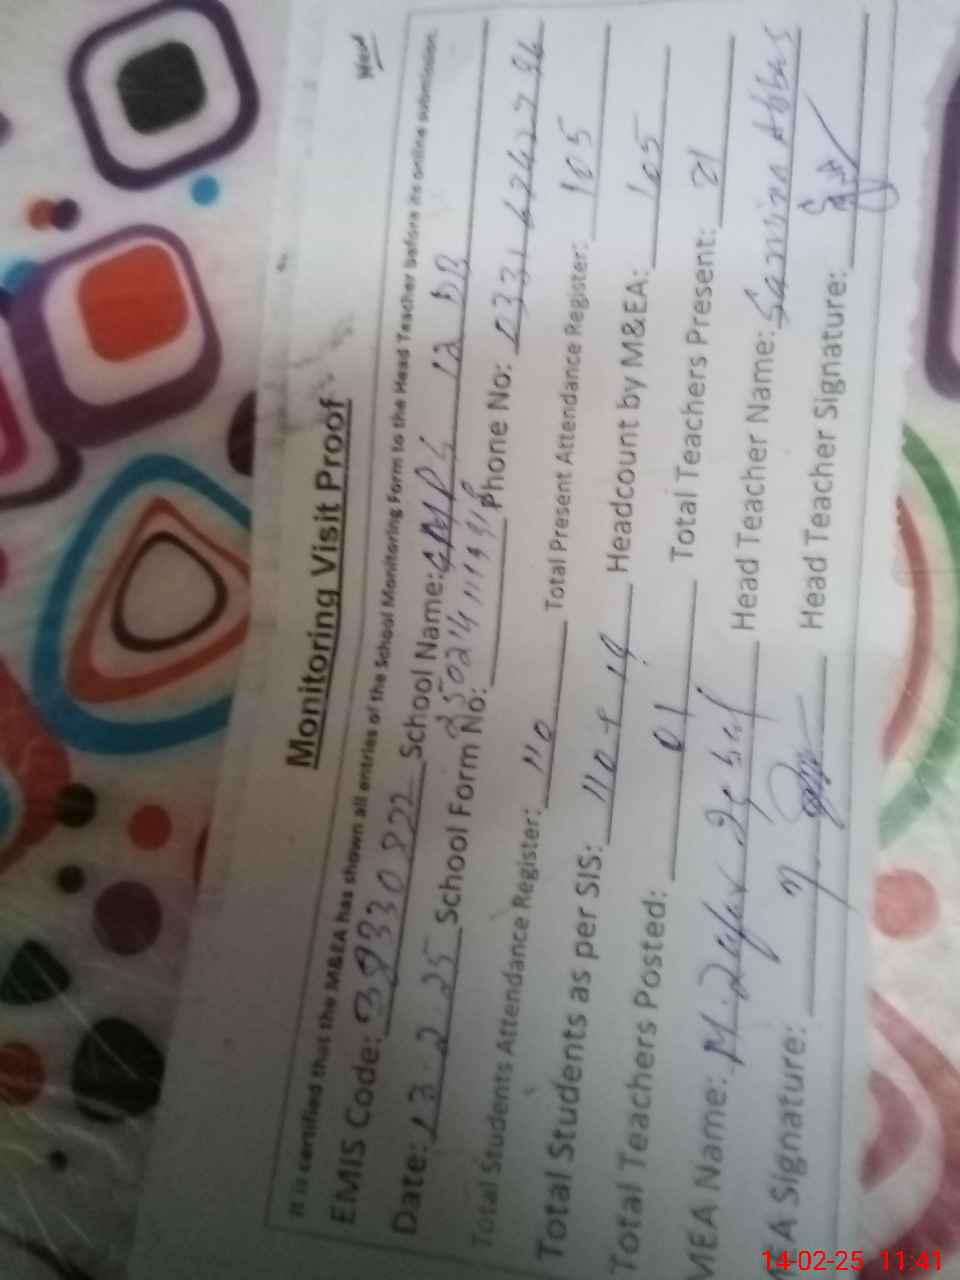 Monitoring Visit Proof
It is certified that the M&EA has shown all entries of the School Monitoring Form to the Head Teacher before its online submission.
EMIS Code: 38330822 School Name: GMPS 12 DB
Date: 13.2.25 School Form No: Phone No:
Total Students Attendance Register: 110 Total Present Attendance Register: 105
Total Students as per SIS: 110+19 Headcount by M&EA: 105
Total Teachers Posted: 01 Total Teachers Present: 01
MEA Name: M. Zafar Iqbal Head Teacher Name: Samina Abbas
EA Signature: Head Teacher Signature:
14-02-25 11:41